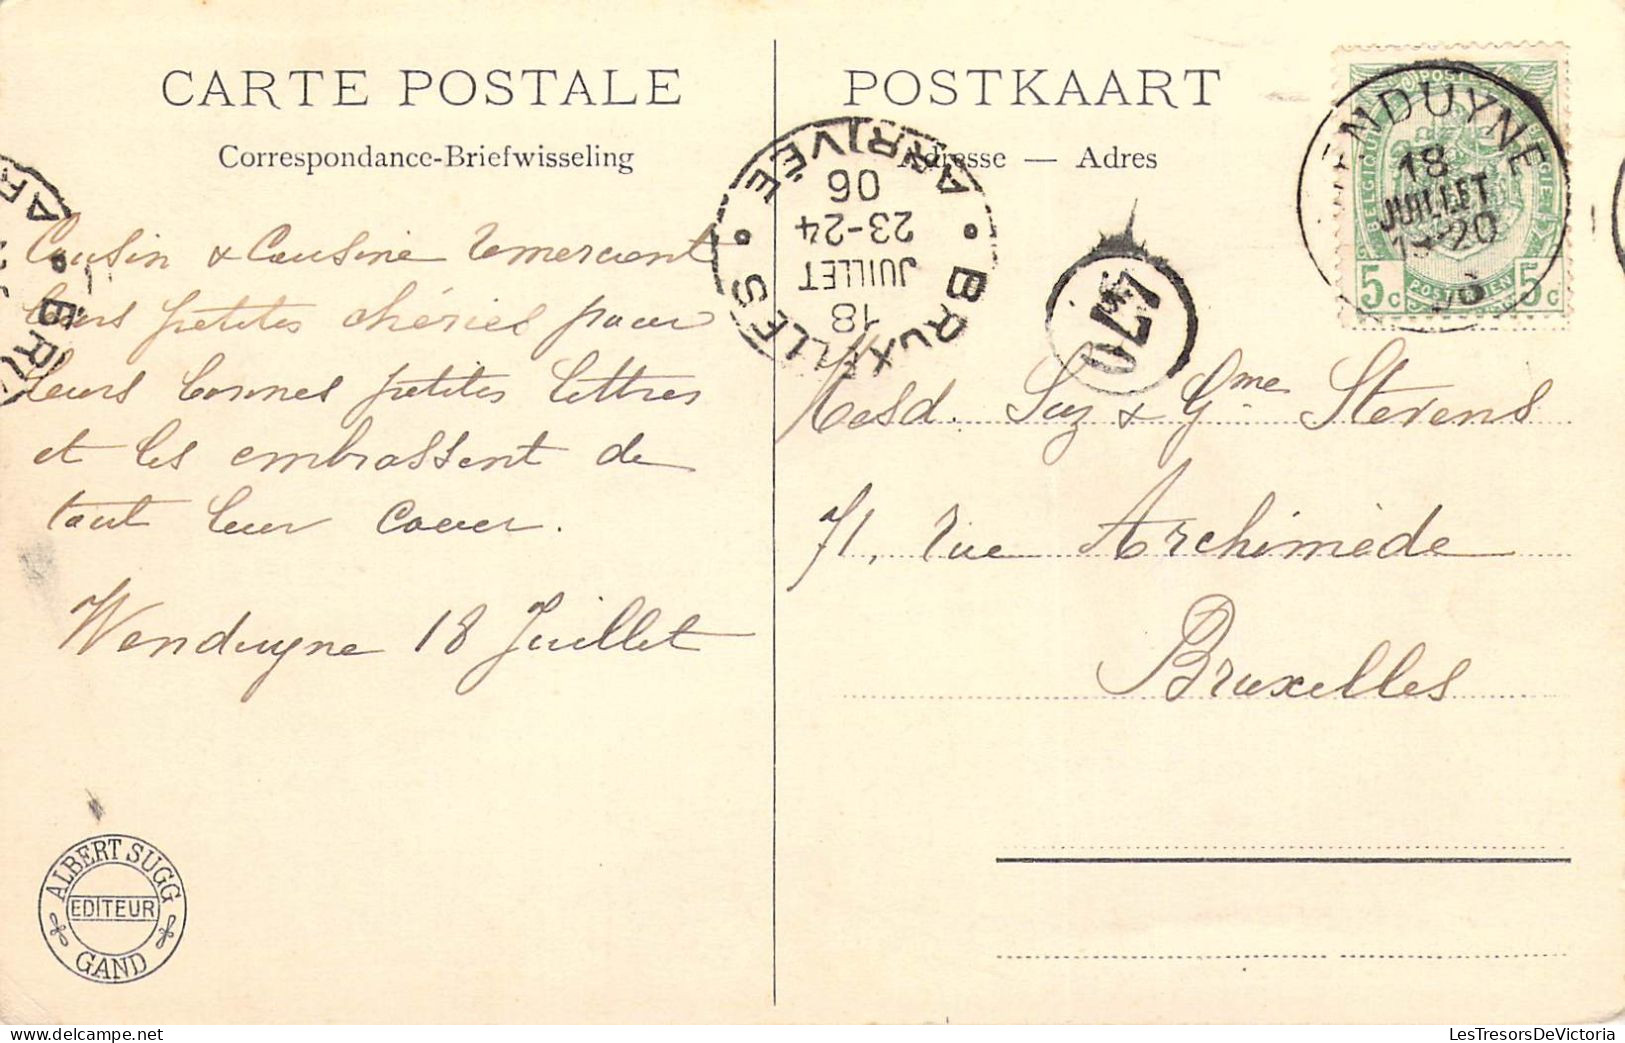 CARTE POSTALE
Correspondance-Briefwisseling
Cousin & Cousine remercient
leurs petites chéries pour
leurs bonnes petites lettres
et les embrassent de
tout leur coeur.
Wenduyne 18 Juillet
ALBERT SUGG
EDITEUR
GAND
POSTKAART
Adresse — Adres
BRUXELLES
ARRIVÉE
18
JUILLET
23-24
06
ENDUYNE
18
JUILLET
5c
5c
Mesd. Suz & Gme Stevens
71, rue Archimède
Bruxelles
LesTresorsDeVictoria